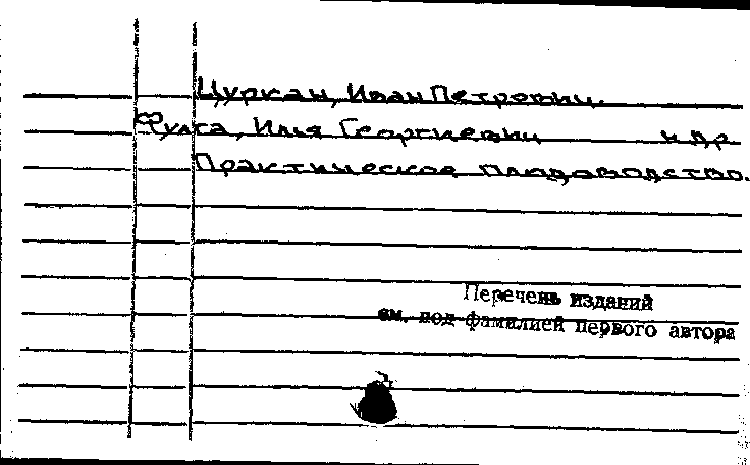 Цуркан, Иван Петрович.
Фулга, Илья Георгиевич и др
Практическое плодоводство.
Перечень изданий
см. под фамилией первого автора